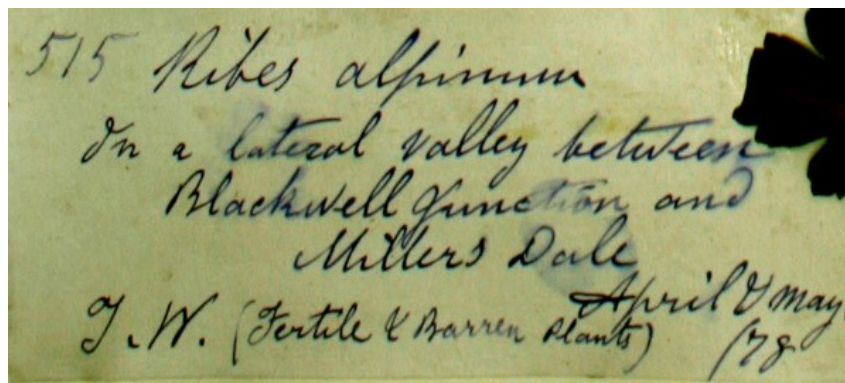 515 Ribes alpinum
In a lateral valley between
Blackwell Junction and
Millers Dale
April & May
T. W. (Fertile & Barren Plants)
/78